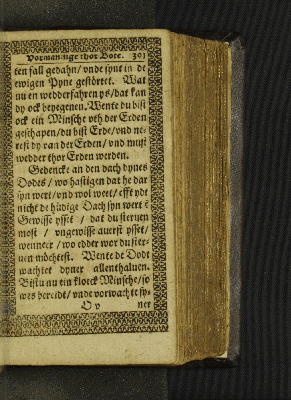 Vormaninge thor Bote. 301
ten fall gedahn/ vnde synt in de
ewigen Pyne gestörtet. Wat
nu en wedderfahren ys/ dat kan
dy ock beyegenen. Wente du bist
ock ein Minsche vth der Erden
geschapen/ du bist Erde/ vnd
rest dy van der Erden/ vnd must
wedder thor Erden werden.
Gedencke an den dach dynes
Dodes/ wo hastigen dat he dar
syn wert/ vnd wol wert/ efft ydt
nicht de hüdige Dach syn wert
Gewisse ysset / dat du steruen
most / vngewisse auerst ysset/
wenneer / wo edder wor du ster-
uen möchtest. Wente de Dodt
wachtet dyner allenthaluen.
Bistu nu ein kloeck Minsche/ so
wes bereidt/ vnde vorwachte sy-
ner